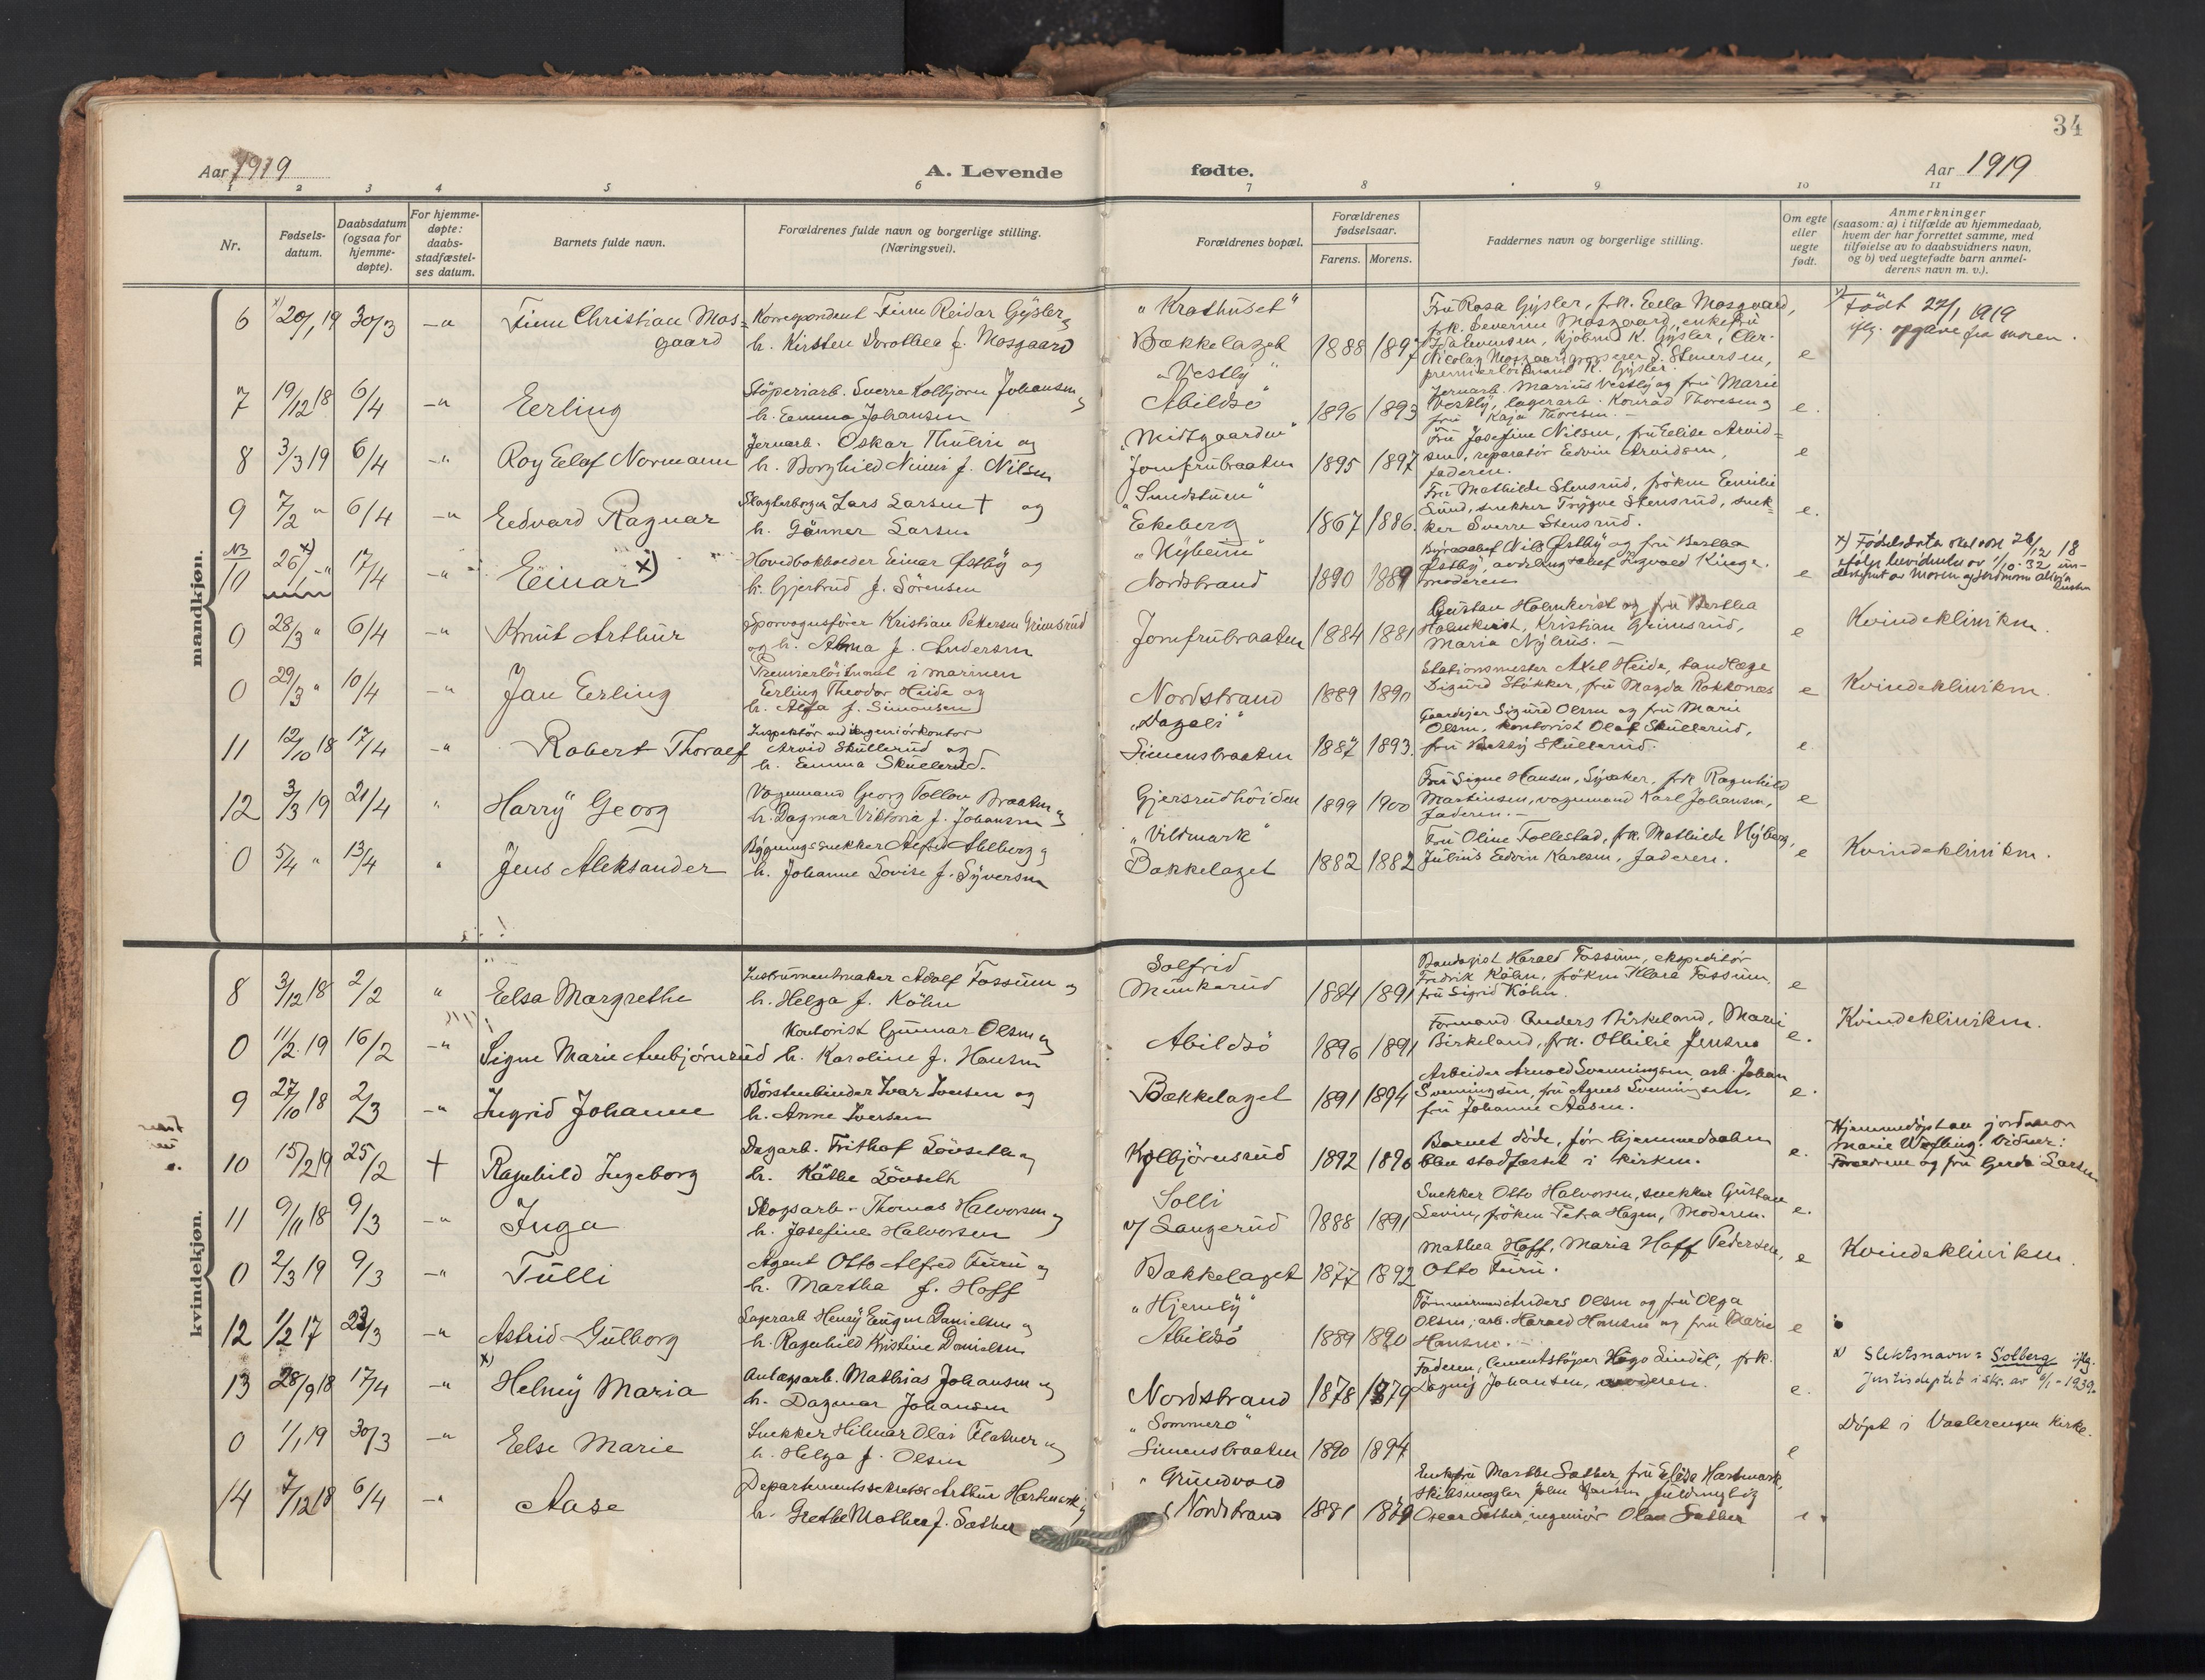 34
Aar 1919
A. Levende
fødte.
Aar 1919
1 2 3 4 5 6 7 8 9 10 11
Nr.
Fødsels-
datum.
Daabsdatum
(ogsaa for
hjemme-
døpte).
For hjemme-
døpte:
daabs-
stadfæstel-
ses datum.
Barnets fulde navn.
Forældrenes fulde navn og borgerlige stilling.
(Næringsvei).
Forældrenes bopæl.
Forældrenes
fødselsaar.
Farens. Morens.
Faddernes navn og borgerlige stilling.
Om egte
eller
uegte
født.
Anmerkninger
(saasom: a) i tilfælde av hjemmedaab,
hvem der har forrettet samme, med
tilføielse av to daabsvidners navn,
og b) ved uegtefødte barn anmel-
derens navn m. v.).
mandkjøn.
6 x) 20/1 19 30/3 -"- Finn Christian Mos-
gaard
Korrespondent Finn Reidar Gysler og
h. Kirsten Dorothea f. Mosgaard
"Krathuset"
Bækkelaget 1888 1897
Fru Rosa Gysler, frk. Ella Mosgaard,
frk. Severine Mosgaard, enkefru
kjøbmd K. Gysler,
Nicolay Mosgaard, grosserer S. Stenersen,
premierløitnant K. Gysler.
e
x) Født 22/1 1919
iflg. opgave fra moren.
7 19/12 18 6/4 -"- Erling
Støperiarb. Sverre Kolbjørn Johansen og
h. Emma Johansen
"Vestby"
Abildsø 1896 1893
Jernarb. Marius Vestby og fru Marie
Vestby, lagerarb. Konrad Thoresen og
fru Kaja Thoresen. -
e.
8 3/3 19 6/4 -"- Roy Elof Normann
Jernarb. Oskar Thulin og
h. Borghild Ninni f. Nilsen
"Midtgaarden"
Jomfrubraaten 1895 1897
Fru Josefine Nilsen, fru Elise Arvid-
sen, reparatør Edvin Arvidsen,
faderen.
e
9 7/2 " 6/4 -"- Edvard Ragnar
Slagterborger Lars Larsen † og
h. Gunner Larsen
"Smedstuen"
Ekeberg 1867 1886.
Fru Mathilde Stensrud, frøken Emilie
Lund, snekker Trygve Stensrud, snek-
ker Sverre Stensrud.
e.
NB
10 26 x) -"- 17/4 -"- Einar x)
Hovedbokholder Einar Østby og
h. Gjertrud f. Sørensen
"Nyheim"
Nordstrand 1890 1889
Byraachef Nils Østby og fru Bertha
Østby, avdelingschef Sigvald Kinge.
moderen
e
x) Fødselsdato skal være 26/12 18
ifølge bevidnelse av 1/10-32 un-
derskrevet av moren og jordmoren
0 28/3 " 6/4 -"- Knut Arthur
Sporvognsfører Kristian Pettersen Grimsrud
og h. Alma f. Andersen
Jomfrubraaten 1884 1881
Gustav Holmkvist og fru Bertha
Holmkvist, Kristian Grimsrud,
Maria Nylius. -
e
Kvindeklinikken.
0 29/3 " 10/4 -"- Jan Erling
Premierløitnant i marinen
Erling Theodor Heide og
h. Alfa f. Simonsen
Nordstrand 1889 1890
Stationsmester Axel Heide, tandlæge
Sigurd Støkker, fru Magda Rokkones
e
Kvindeklinikken.
11 12/10 18 17/4 -"- Robert Thoralf
Inspektør ved ingeniørkontor
Arvid Skullerud og
h. Emma Skullerud.
"Dagali"
Simensbraaten 1887 1893.
Gaardeier Sigurd Olsen og fru Marie
Olsen, kontorist Olaf Skullerud,
fru Betsy Skullerud.
e.
12 3/3 19 21/4 " Harry Georg
Vognmand Georg Tollov Braaten og
h. Dagmar Viktoria f. Johansen
Gjersrudhøiden 1899 1900
Fru Signe Hansen, Sypaker, frk Ragnhild
Martinsen, vognmand Karl Johansen,
faderen. -
e
0 5/4 " 13/4 " Jens Aleksander
Bygningssnekker Alfred Ahlberg og
h. Johanne Lovise f. Syversen
"Vildmark"
Bækkelaget 1882 1882
Fru Oline Follestad, frk. Mathilde Nyberg,
Julius Edvin Karlsen, faderen.
e
Kvindeklinikken.
kvindekjøn.
8 3/12 18 2/2 " Elsa Margrethe
Instrumentmaker Adolf Fossum og
h. Helga f. Köhn
Solfrid
Munkerud 1884 1891
Bandagist Harald Fossum, ekspeditør
Fredrik Köhn, frøken Klara Fossum,
fru Sigrid Köhn.
e
0 11/2 19 16/2 -"- Signe Marie Aubjørnsrud
Kontorist Gunnar Olsen og
h. Karoline f. Hansen
Abildsø 1896 1891
Formand Anders Birkeland, Marie
Birkeland, frk. Othilie Jensen
e.
Kvindeklinikken.
9 27/10 18 2/3 -"- Ingrid Johanne
Børstenbinder Ivar Iversen og
h. Anne Iversen
Bækkelaget 1891 1894
Arbeider Arnold Svenningsen, arb. Johan
Svenningsen, fru Agnes Svenningsen,
fru Johanne Aasen.
e.
10 15/2 19 25/2 † Ragnhild Ingeborg
Dagarb. Frithof Løvseth og
h. Käthe Løvseth
Kolbjørnsrud 1892 1896
Barnet døde, før hjemmedaaben
blev stadfæstet i kirken.
e.
Hjemmedøpt av jordmor
Marie Wæfling. Vidner:
Forældrene og fru Gerda Larsen
11 9/11 18 9/3 -"- Inga
Skogsarb. Thomas Halvorsen og
h. Josefine Halvorsen
Solli
v/ Langerud 1888 1891
Snekker Otto Halvorsen, snekker Gustav
Levin, frøken Petra Hagen, Moderen.
e.
0 2/3 19 9/3 -"- Tulli
Agent Otto Alfred Furu og
h. Martha f. Hoff
Bækkelaget 1877 1892
Mathea Hoff, Maria Hoff Pedersen,
Otto Furu.
e
Kvindeklinikken.
12 1/2 17 23/3 -"- Astrid Gulborg
Lagerarb Henry Eugen Danielsen og
h. Ragnhild Kristine Danielsen
"Hjemly"
Abildsø 1889 1890
Tømmermand Anders Olsen og fru Olga
Olsen, arb. Harald Hansen og fru Marie
Hansen. -
e
13 28/9 18 17/4 -"- x) Helny Maria
Anlægsarb. Mathias Johansen og
h. Dagmar Johansen
Nordstrand 1878 1879
Faderen, Cementstøper Hugo Lindel, frk.
Dagny Johansen, moderen.
e.
x) Slektsnavn: Solberg iflg.
Justisdeptet i skr. av 6/1-1939.
0 1/1 19 30/3 -"- Else Marie
Snekker Hilmar Olai Flatner og
h. Helga f. Olsen
"Sommero"
Simensbraaten 1890 1894
e
Døpt i Vaalerengen Kirke.
14 7/12 18 6/4 -"- Aase
Departementssekretær Arthur Hartmark og
h. Grethe Mathea f. Sæther
"Grundvold
Nordstrand 1881 1879
Enkefru Marthe Sæther, fru Elisa Hartmark,
Skibsmægler John Hansen, fuldmægtig
Oscar Sæther, ingeniør Olav Sæther
e.